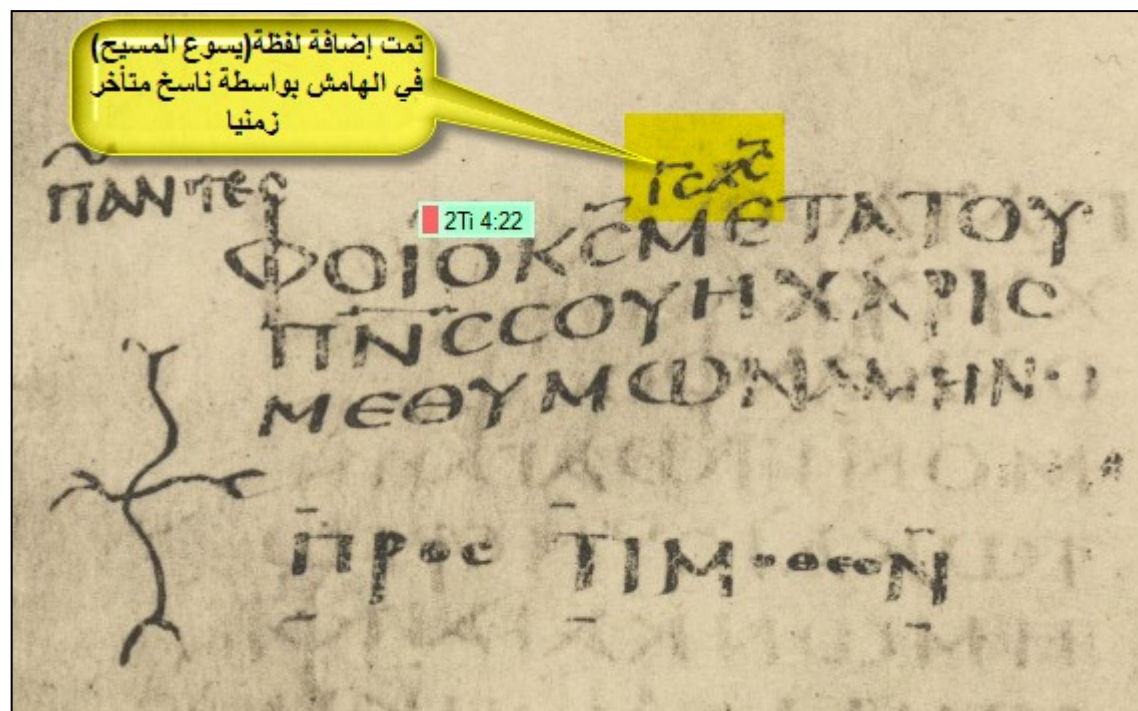 تمت إضافة لفظة(يسوع المسيح)
في الهامش بواسطة ناسخ متأخر
زمنيا
ΙϹΧϹ
ΠΑΝΤΕϹ
2Ti 4:22
ΦΟΙΟΚϹΜΕΤΑΤΟΥ
ΠΝϹϹΟΥΗΧΑΡΙϹ
ΜΕΘΥΜΩΝΑΜΗΝ·
ΠΡΟϹ ΤΙΜΟΘΕΟΝ